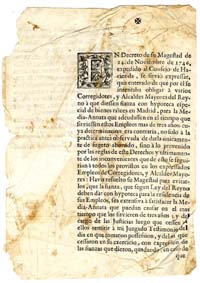 EN Decreto de su Magestad de
24. de Noviembre de 1746.
expedido al Consejo de Ha-
cienda, se sirvió expressar,
que enterado de que por el se
intentaba obligar à varios
Corregidores, y Alcaldes Mayores del Rey-
no à que diessen fianza con hypoteca espe-
cial de bienes raìces en Madrid, para la Me-
dia-Annata que adeudassen en el tiempo que
sirviessen estos Empleos mas de tres años en
en contrario, no solo à la
practica antes observada de
de sugeto abonado, sino à lo prevenido
por las reglas de este Derecho, y
de los inconvenientes que de esto se
à todos los provistos en los
Empleos de Corregidores, y Alcaldes Mayo-
res: Havìa resuelto su Magestad para evitar-
los, que la fianza, que segun Ley del Reyno
deben dar con hypoteca para la residencia de
sus Empleos, sea extensiva à satisfacer la Me-
dia-Annata que puedan en el mas
tiempo que las sirvieren de tres años, y
cargo de las Justicias luego que cessen
ellos remitir à mi Juzgado Testimonio del
dia en que tomaron possession, y del que
cessaron en su exercicio, con expression de
las fianzas que dieron, quedando
que